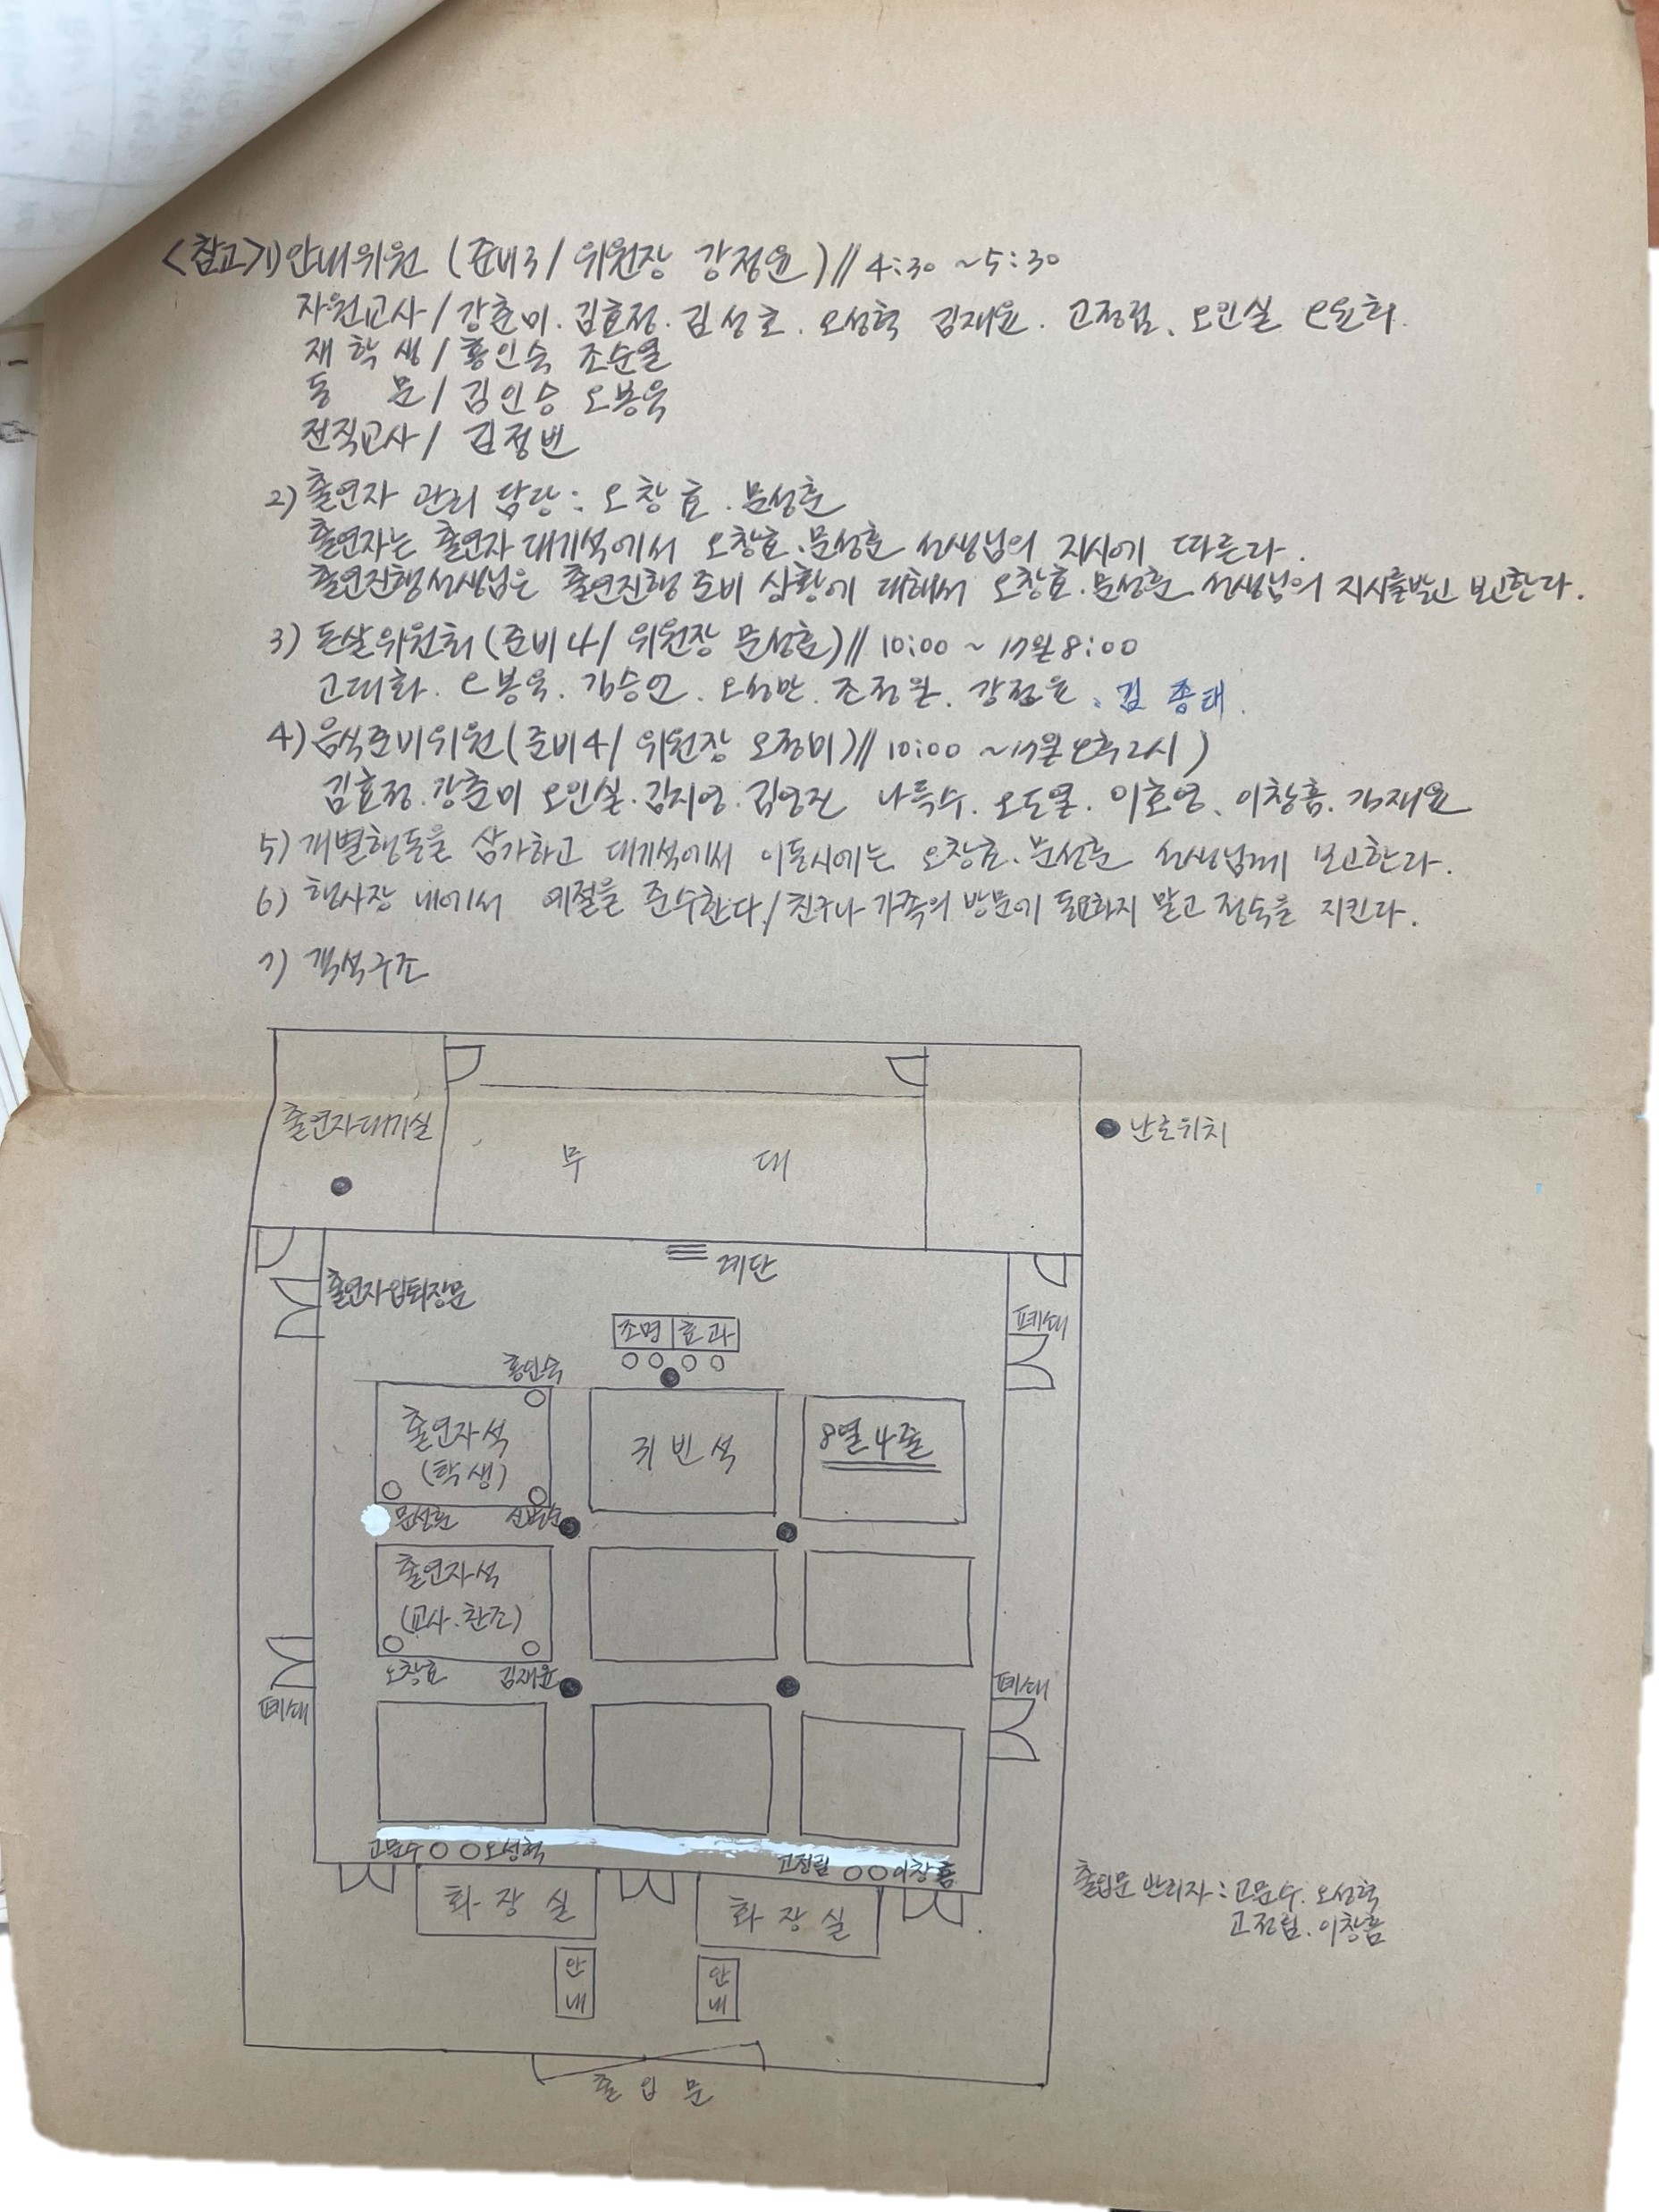 <참고>1) 안내위원 (준비3/ 위원장 강정윤)// 4:30 ~5:30
자원교사/ 강춘미. 김효정. 김성호. 오성혁 김재윤. 고정림. 오인실 오윤희.
재 학 생/ 홍인숙 조순열
동 문/ 김인승 오봉욱
전직교사/ 김정번
2) 출연자 관리 담당: 오창효. 문성훈
출연자는 출연자 대기석에서 오창효.문성훈 선생님의 지시에 따른다.
출연진행선생님은 출연진행 준비 상황에 대해서 오창효.문성훈 선생님의 지시를받고 보고한다.
3) 돈살위원회(준비4/ 위원장 문성훈)// 10:00 ~ 17일 8:00
고대화. 오봉욱. 김승언. 오성만. 조정원. 강정윤. 김 종태.
4) 음식준비위원(준비4/ 위원장 오정미)// 10:00 ~17일 오후2시)
김효정. 강춘미 오인실. 김지영. 김영진 나득수. 오도열. 이호영. 이창흠. 김재윤
5) 개별행동을 삼가하고 대기석에서 이동시에는 오창효.문성훈 선생님께 보고한다.
6) 행사장 내에서 예절을 준수한다./친구나 가족의 방문에 동요하지 말고 정숙을 지킨다.
7) 객석구조
출연자대기실
무 대
난로위치
계단
출연자입퇴장문
폐쇄
조명 효과
홍인숙
출연자석
(학생)
귀 빈 석
8열 4줄
문성훈
출연자석
(교사.찬조)
오창효 김재윤
폐쇄
폐쇄
고문수 오성혁
고정림 이창흠
화 장 실
화 장 실
출입문 관리자: 고문수. 오성혁
고정림. 이창흠
안내
안내
출 입 문